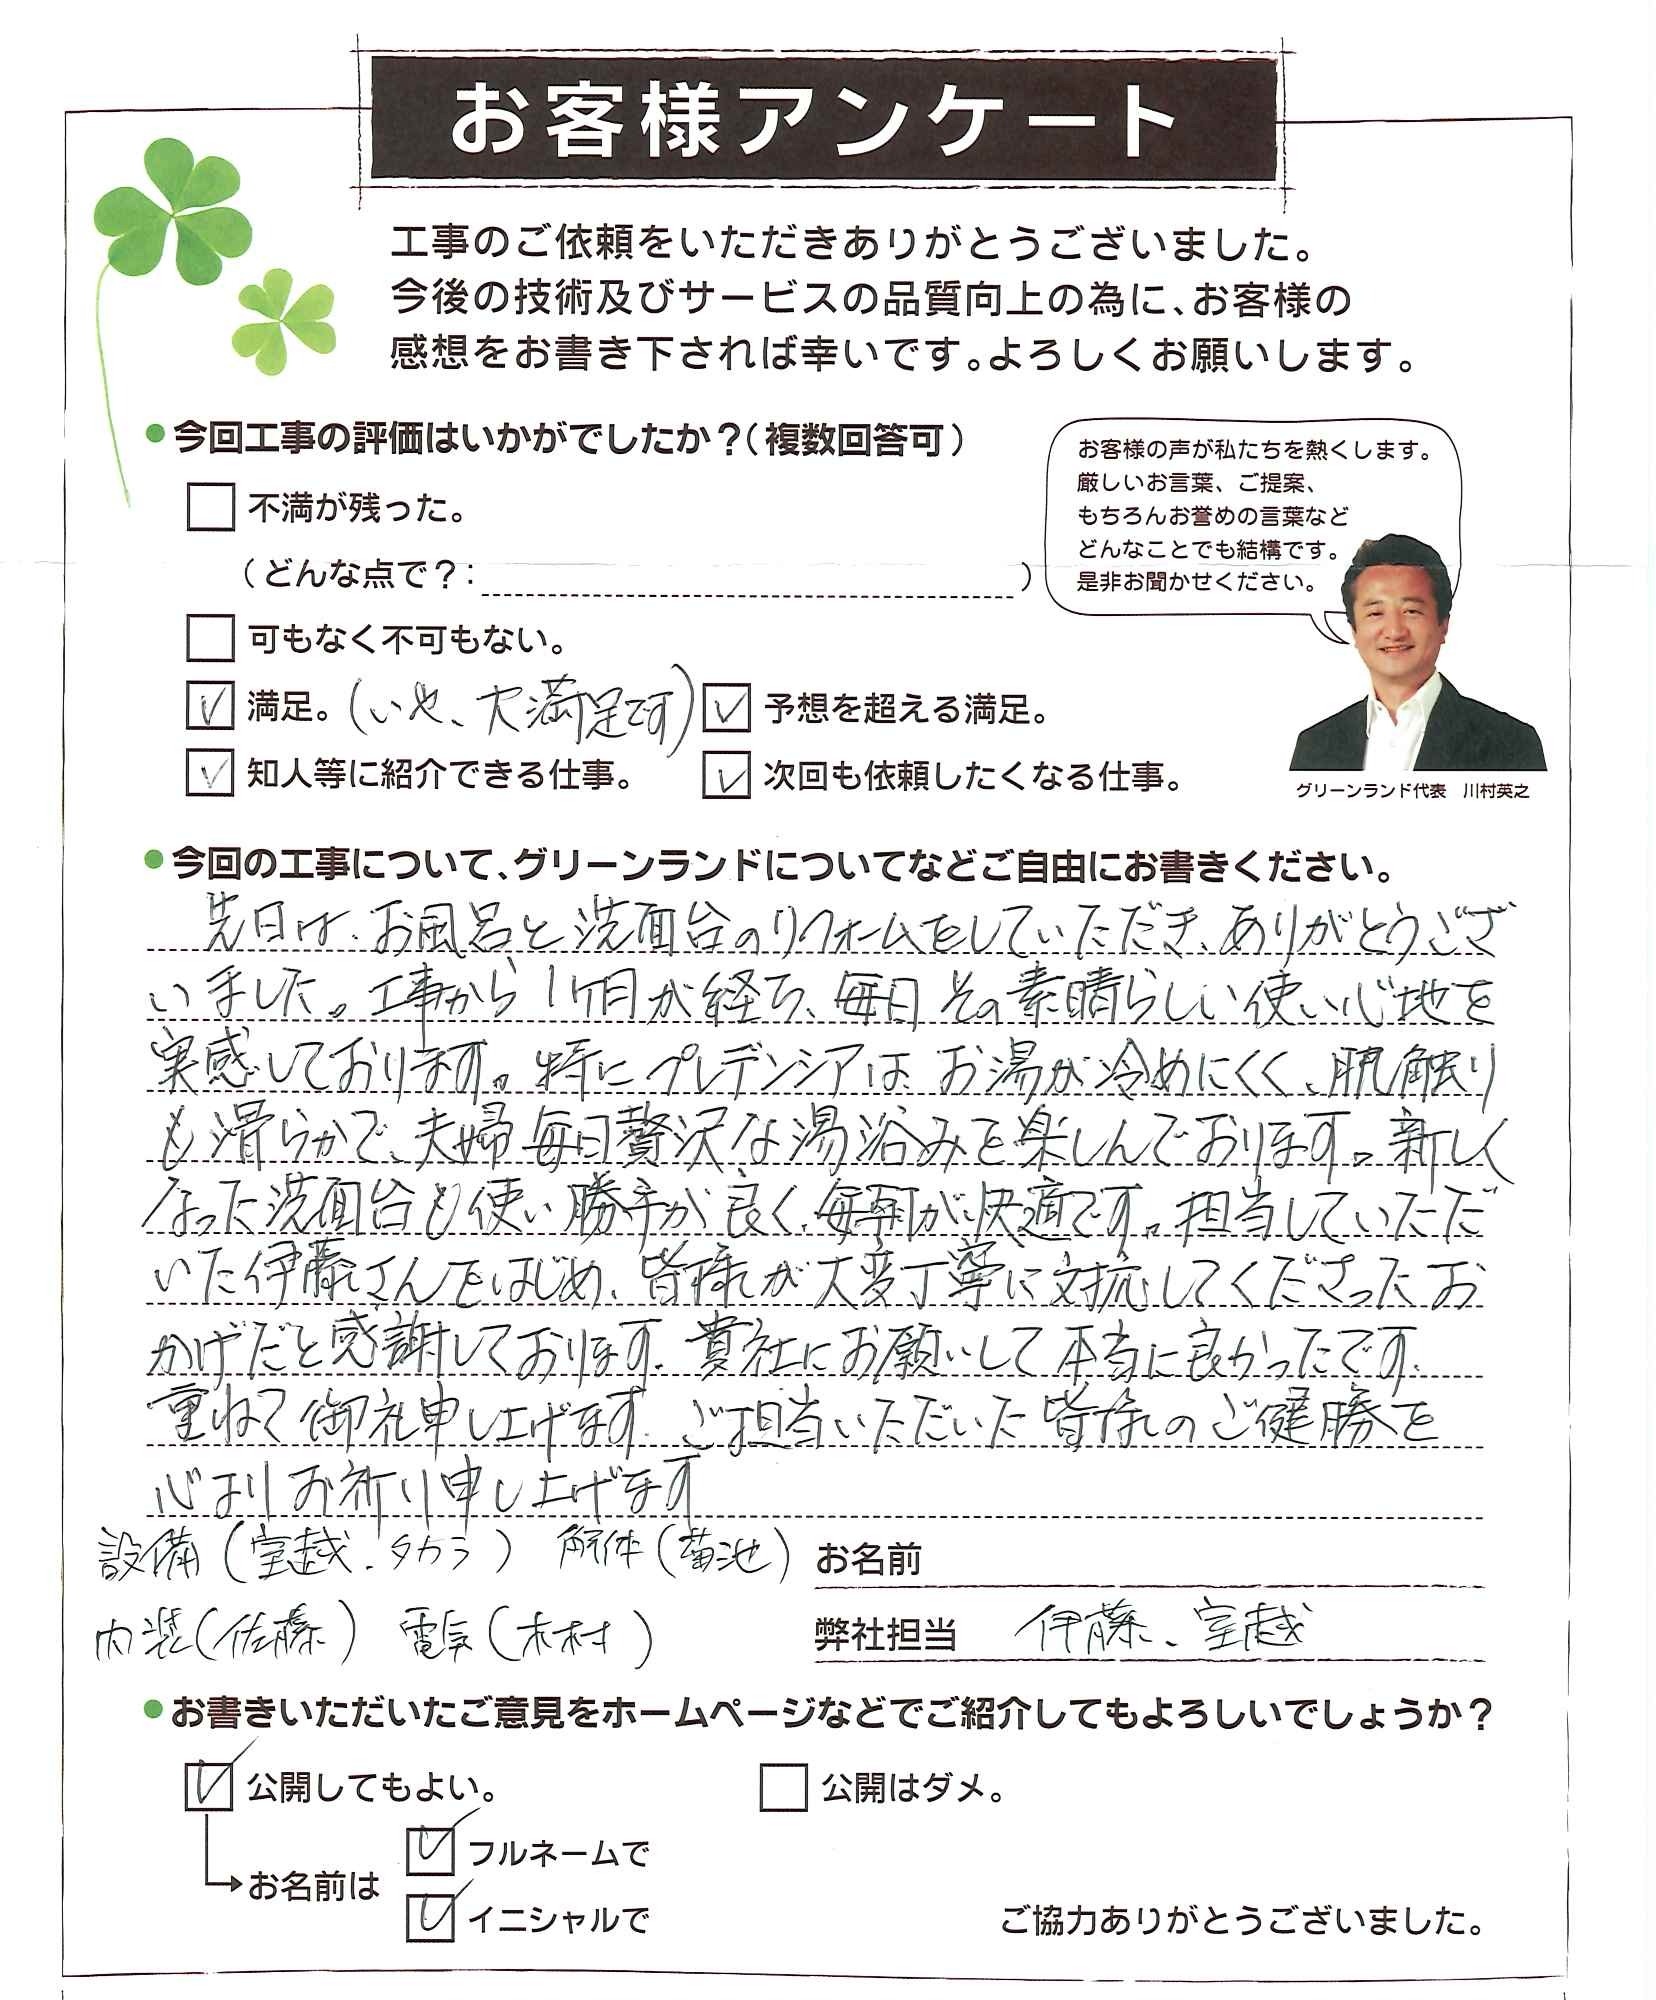 お客様アンケート
工事のご依頼をいただきありがとうございました。
今後の技術及びサービスの品質向上の為に、お客様の
感想をお書き下されば幸いです。よろしくお願いします。
●今回工事の評価はいかがでしたか？（複数回答可）
不満が残った。
（どんな点で？：　）
可もなく不可もない。
満足。（いや、大満足です） 予想を超える満足。
知人等に紹介できる仕事。 次回も依頼したくなる仕事。
お客様の声が私たちを熱くします。
厳しいお言葉、ご提案、
もちろんお誉めの言葉など
どんなことでも結構です。
是非お聞かせください。
グリーンランド代表　川村英之
●今回の工事について、グリーンランドについてなどご自由にお書きください。
先日は、お風呂と洗面台のリフォームをしていただき、ありがとうござ
いました。工事から1ケ月が経ち、毎日その素晴らしい使い心地を
実感しております。特にプレデンシアはお湯が冷めにくく、肌触り
も滑らかで、夫婦毎日贅沢な湯浴みを楽しんでおります。新しく
なった洗面台も使い勝手が良く、毎朝が快適です。担当していただ
いた伊藤さんをはじめ、皆様が大変丁寧に対応してくださったお
かげだと感謝しております。貴社にお願いして本当に良かったです。
重ねて御礼申し上げます。ご担当いただいた皆様のご健勝を
心よりお祈り申し上げます
設備（室越、タカラ） 解体（菊池） お名前
内装（佐藤） 電気（木村） 弊社担当 伊藤、室越
●お書きいただいたご意見をホームページなどでご紹介してもよろしいでしょうか？
公開してもよい。 公開はダメ。
お名前は フルネームで
イニシャルで
ご協力ありがとうございました。